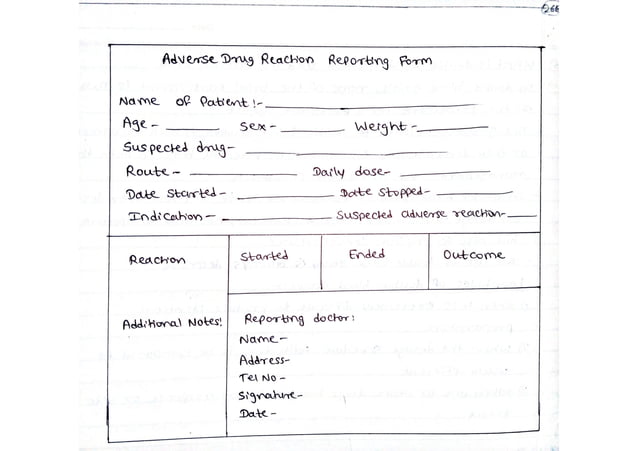 266
Adverse Drug Reaction Reporting Form
Name of Patient:-
Age- Sex- Weight-
Suspected drug-
Route- Daily dose-
Date Started- Date Stopped-
Indication- Suspected adverse reaction-
Reaction Started Ended Outcome
Additional Notes: Reporting doctor:
Name-
Address-
Tel No-
Signature-
Date-